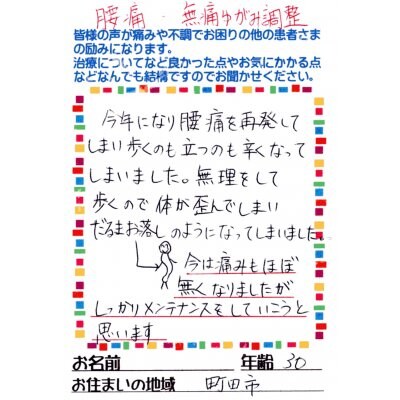 腰痛・無痛ゆがみ調整
皆様の声が痛みや不調でお困りの他の患者さま
の励みになります。
治療についてなど良かった点やお気にかかる点
などなんでも結構ですのでお聞かせください。
今年になり腰痛を再発して
しまい歩くのも立つのも辛くなって
しまいました。無理をして
歩くので体が歪んでしまい
だるまお落しのようになってしまいました。
今は痛みもほぼ
無くなりましたが
しっかりメンテナンスをしていこうと
思います
お名前 年齢 30
お住まいの地域 町田市